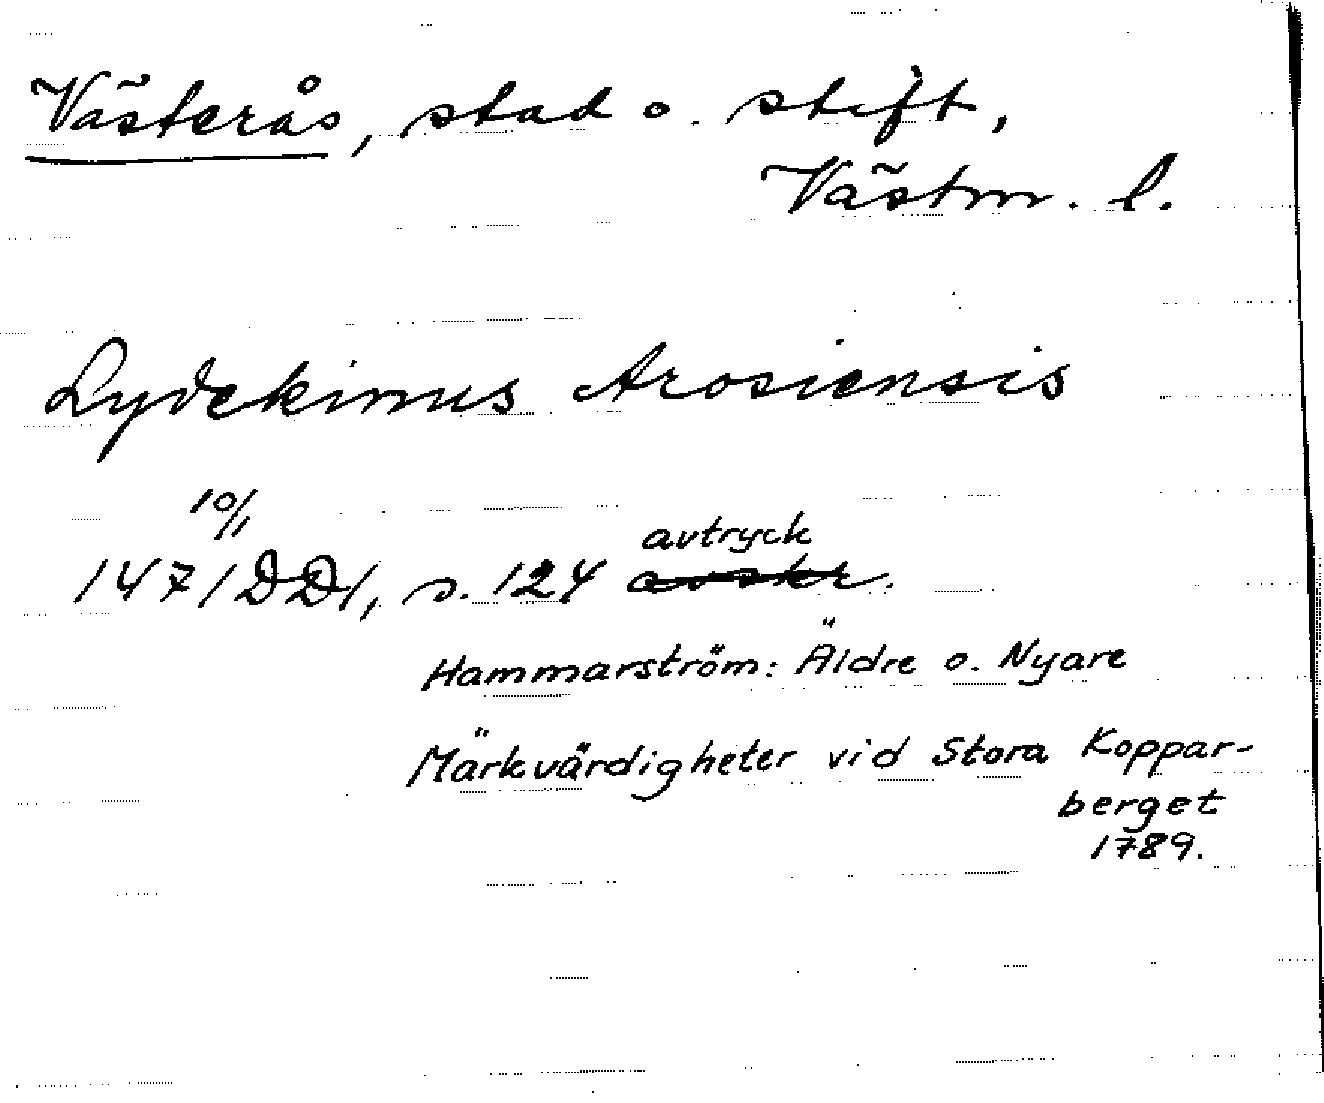 Västerås, stad o. stift,
Västm. l.
Lydekinus Arosiensis
10/1
1471 DD1, s. 124 avskr.
avtryck
Hammarström: Äldre o. Nyare
Märkvärdigheter vid Stora Koppar-
berget
1789.